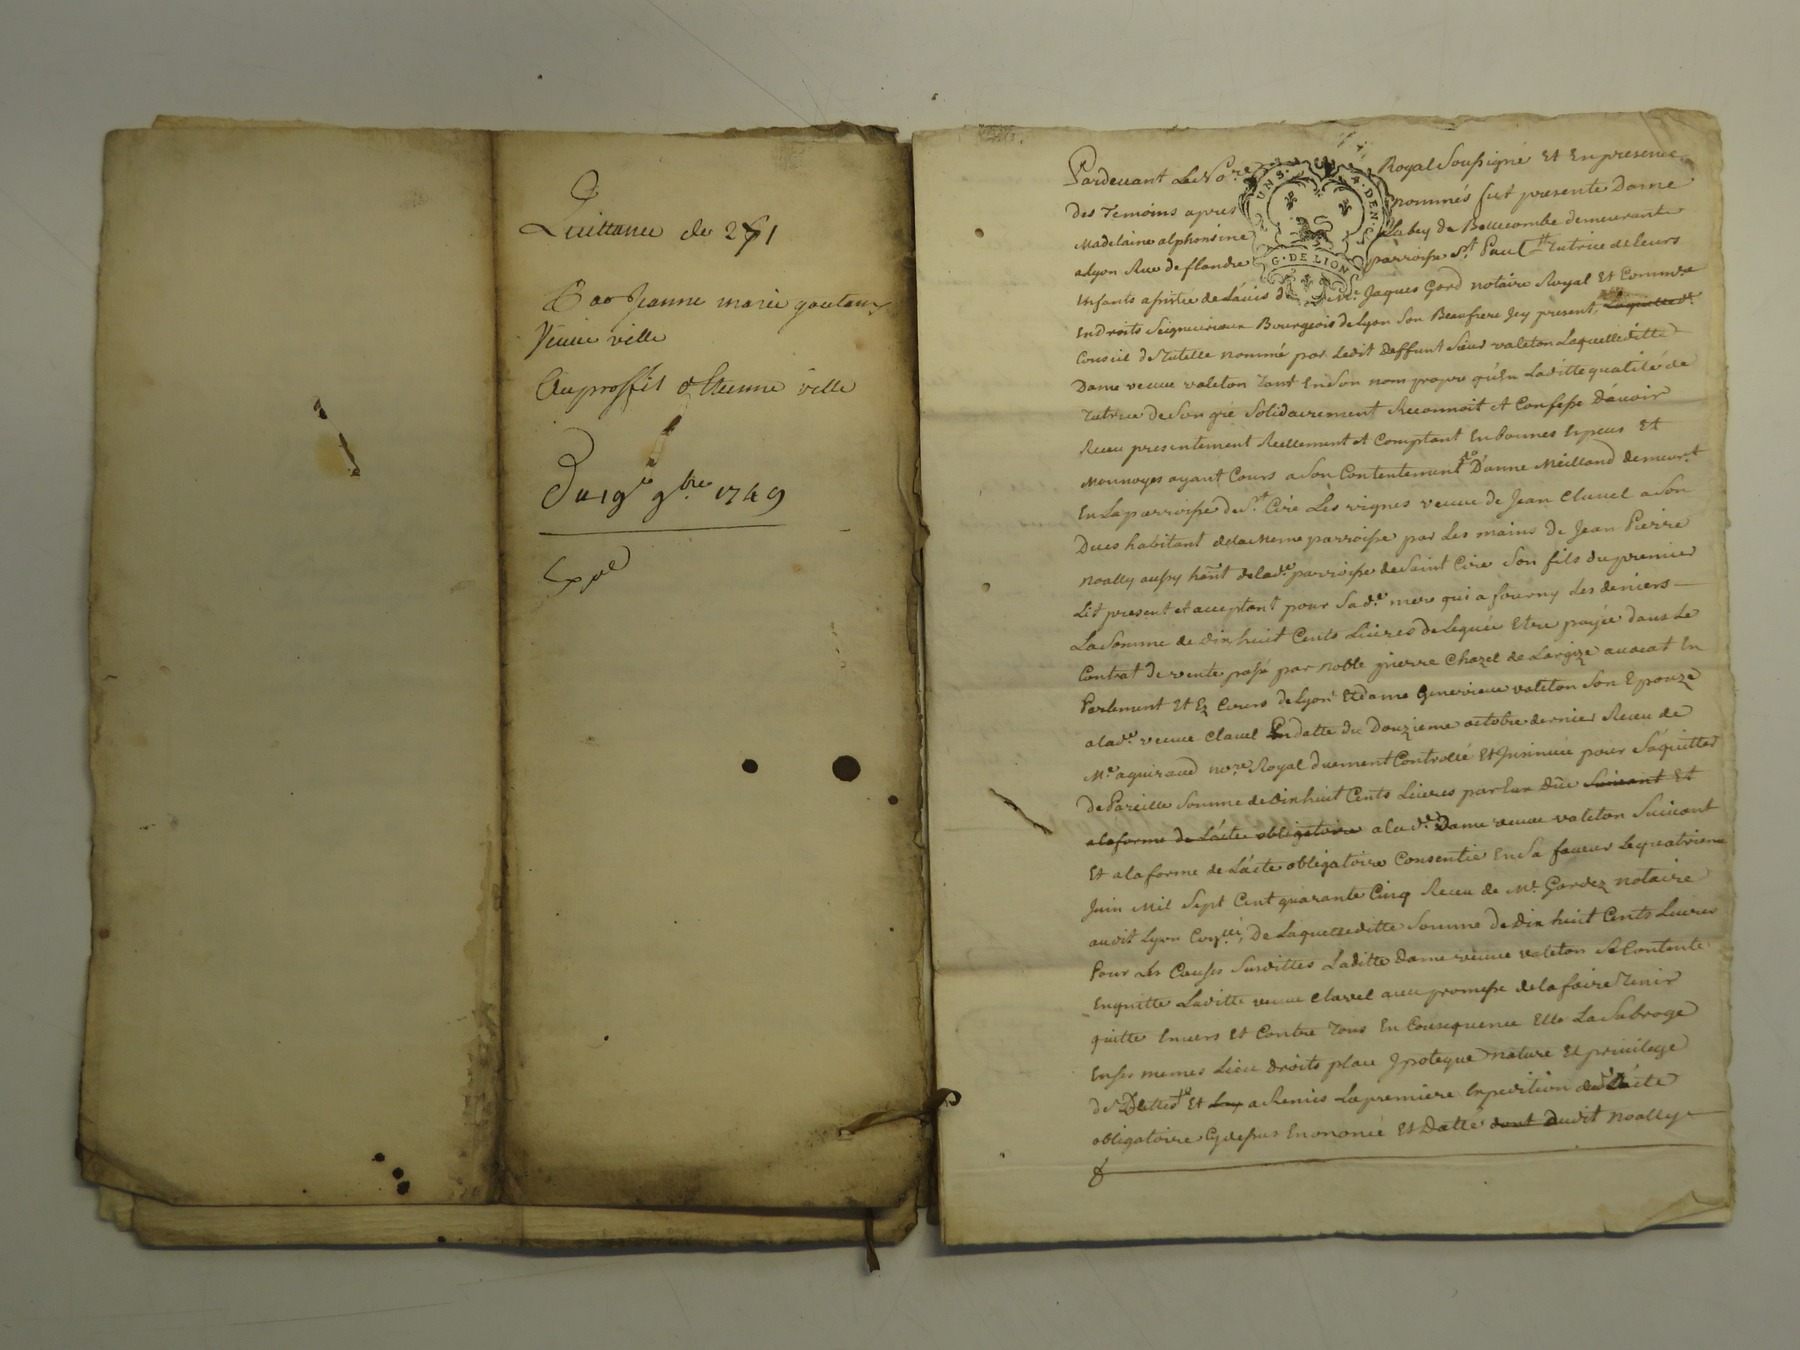 Quittance de 251
Par Jeanne marie
Veuve ville
Au proffit d'Etienne ville
Du 19e 9bre 1749
Expé
Pardevant Le No.re Royal Soussigné Et En presence
des Temoins apres nommés fut presente Dame
Madelaine alphonsine Labey de Bellecombe demeurante
a Lyon Rue de flandre parroisse St. Paul Tutrice de leurs
Enfants assistée de L'avis de Me. Jaques Gord notaire Royal Et Commre
En droits Seigneuriaux Bourgeois de Lyon Son Beaufrere Icy present,
Conseil de Tutelle nommé par Ledit deffunt Sieur valeton Laquelle ditte
Dame veuve valeton Tant En Son nom propre qu'En Laditte qualité de
Tutrice de Son gré Solidairement Reconnoit et Confesse D'avoir
Receu presentement Reellement et Comptant En bonnes Especes Et
Monnoyes ayant Cours a Son Contentement D'anne Meilland demeurt
En La parroisse de St. Cire Les vignes veuve de Jean Clavel a Son
Deces habitant de la meme parroisse par Les mains de Jean Pierre
Noally aussy hant de lade. parroisse de Saint Cire Son fils du premier
Lit present et acceptant pour Sade. mere qui a fourny Les deniers
La Somme de dix huit Cents Livres deleguée Etre payée dans Le
Contrat de vente passé par noble pierre Chazel de Largize avocat En
Parlement Et Es Cours de Lyon Et dame Genevieve valeton Son Epouze
a lade. veuve Clavel En datte du Douzieme octobre dernier Receu de
Me aguiraud nore Royal duement Controllé Et Insinué pour S'aquitter
de Pareille Somme de dix huit Cents Livres par Eux Düe Suivant Et
a la forme de L'acte obligatoire a lade. Dame veuve valeton Suivant
Et a la forme de L'acte obligatoire Consentie En Sa faveur Le quatrieme
Juin Mil Sept Cent quarante Cinq Receu de Me. Gardez notaire
audit Lyon De Laquelle ditte Somme de dix huit Cents Livres
Pour Les Causes Susdittes Laditte Dame veuve valeton Se Contente
En quitte Laditte veuve Clavel avec promesse de la faire Tenir
quitte Envers Et Contre Tous En Consequence Elle La Subroge
En Ses memes Lieu droits place Ypoteque nature Et privilege
Et a Remis La premiere Expedition L'acte
obligatoire Cy dessus Enoncé Et Datté dont audit Noally